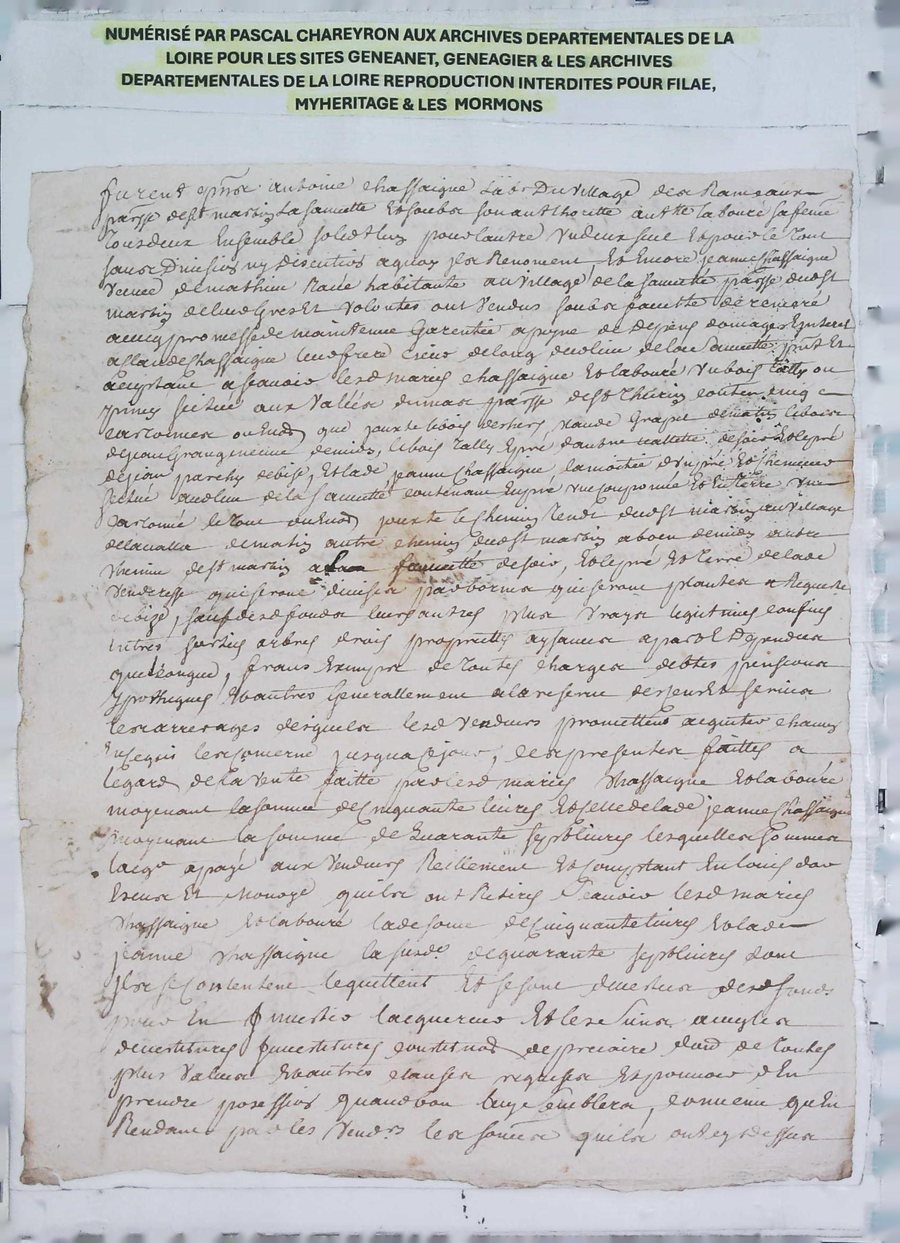 NUMÉRISÉ PAR PASCAL CHAREYRON AUX ARCHIVES DEPARTEMENTALES DE LA
LOIRE POUR LES SITES GENEANET, GENEAGIER & LES ARCHIVES
DEPARTEMENTALES DE LA LOIRE REPRODUCTION INTERDITES POUR FILAE,
MYHERITAGE & LES MORMONS
furent antoine chassaigne Lab Du village des Rameaux
parsse de st martin La sauvetté Et soubz son authoritté anth labouré sa feme
Tous deux Ensemble solid Lun pour lautre Un deux seul Et pour le Tout
sans Division ny discution a quoy Ils Renoncent Et Encore jeanne Chassaigne
veuve de mathieu habitante au village de la sauvetté parsse dud st
martin de leurs Gres Et volontes ont vendus soubz faculté de remeré
avecq promesse de maintenue Garentie a peyne de depens domages Enterest
a Claude Chassaigne leur frere du lieu de la Sauvetté pnt Et
aceptant a scavoir lesd maries Chassaigne Et labouré Un bois Tally ou
situé aux Vallés parsse de st Thurin conten cinq
cartonnes ou End que jouxte le bois des hers Claude Grapit de matin le bois
de jean de midy, le bois Tally Et pré dautre de soir Et le pré
de jean de bise, Et lad jeanne Chassaigne la moitié dun pré Et
situé au lieu de la Sauvetté contenant En pré une Et En Terre une
cartonné le Tout ou End jouxte le Chemin Tend dud st martin au village
de lavalla de matin autre chemin dud st martin a boen de midy autre
chemin de st martin a la sauvetté de soir, Et le pré Et Terre de lad
venderesse qui seront divisés par bornes qui seront plantés a Requeste
de bize, sauf desd fonds leurs autres plus vrays legitimes confins
Entrés sorties arbres droits proprietés aysances aparol Dependces
quelconque, francs Exemps de Toutes charges debtes pensions
ypotheques Et autres Generallement a la reserve des cens Et servis
les arrerages desquels lesd vendeurs promettent aquitter chacun
En ce qui les concerne jusqua ce jour, les presentes faittes a
legard de la vente faitte par lesd maries Chassaigne Et labouré
moyenant la somme de Cinquante livres Et celle de lad jeanne Chassaigne
moyenant la somme de Quarante sept livres lesquelles sommes
lacqr a payé aux vendeurs Reellement Et Comptant En louis dor
Escus Et Monoye quils ont Retirés scavoir lesd maries
Chassaigne Et labouré lad some de Cinquante livres Et lad
jeanne Chassaigne la susd de quarante sept livres dont
Ils se Contentent le quittent Et se sont devestus desd fonds
pour En Investir lacquereur Et les siens avec les
devestitures Investitures constituds de precaire dond de Toutes
plus values Et autres clauses requises Et pouvoir dEn
prendre posession quand bon luy semblera, convenu quEn
Rendant par les vendrs les somes quils ont cy dessus